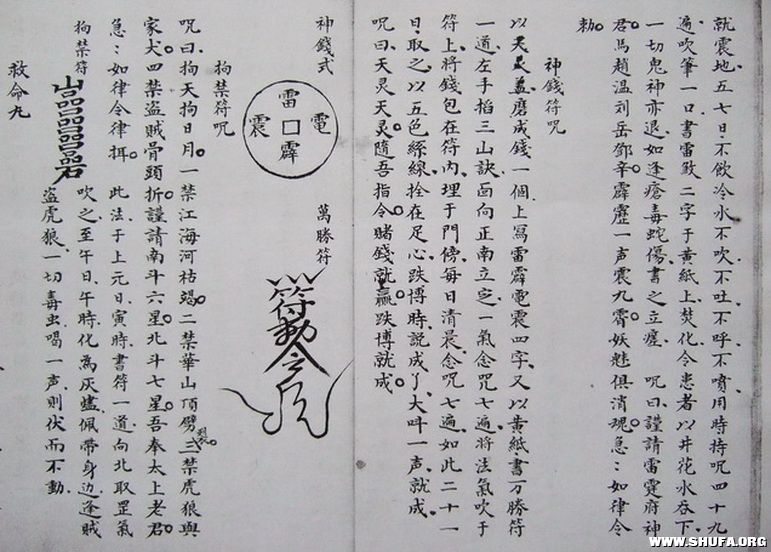 就震地五七日不飲冷水不吹不吐不呼不噴用時持呪四十九
遍吹筆一口書雷致二字于黃紙上焚化令患者以井花水吞下
一切鬼神亦退如逢瘡毒蛇傷書之立痊 呪曰謹請雷霆府神
君馬趙温刘岳鄧辛霹靂一声震九霄妖魅俱消魂急:如律令
勑
神錢符呪
以天灵盖磨成錢一個上冩雷霹電震四字又以黃紙書万勝符
一道左手掐三山訣面向正南立定一氣念咒七遍將法氣吹于
符上將錢包在符內埋于門傍每日清晨念呪七遍如此二十一
日取之以五色絲線拴在足心跌博時説成了大呌一声就成
呪曰天灵天灵隨吾指令賭錢就贏跌博就成
神錢式
雷
電口震
霹
萬勝符
拘禁符呪
呪曰拘天拘日月一禁江海河枯竭二禁華山頂劈裂三禁虎狼與
家犬四禁盗賊骨頭折謹請南斗六星北斗七星吾奉太上老君
急:如律令律揖
拘禁符
此法于上元日寅時書符一道向北取罡氣
吹之至午日午時化為灰燼佩帶身边逢賊
盗虎狼一切毒虫喝一声則伏而不動
救命九
WWW.SHUFA.ORG